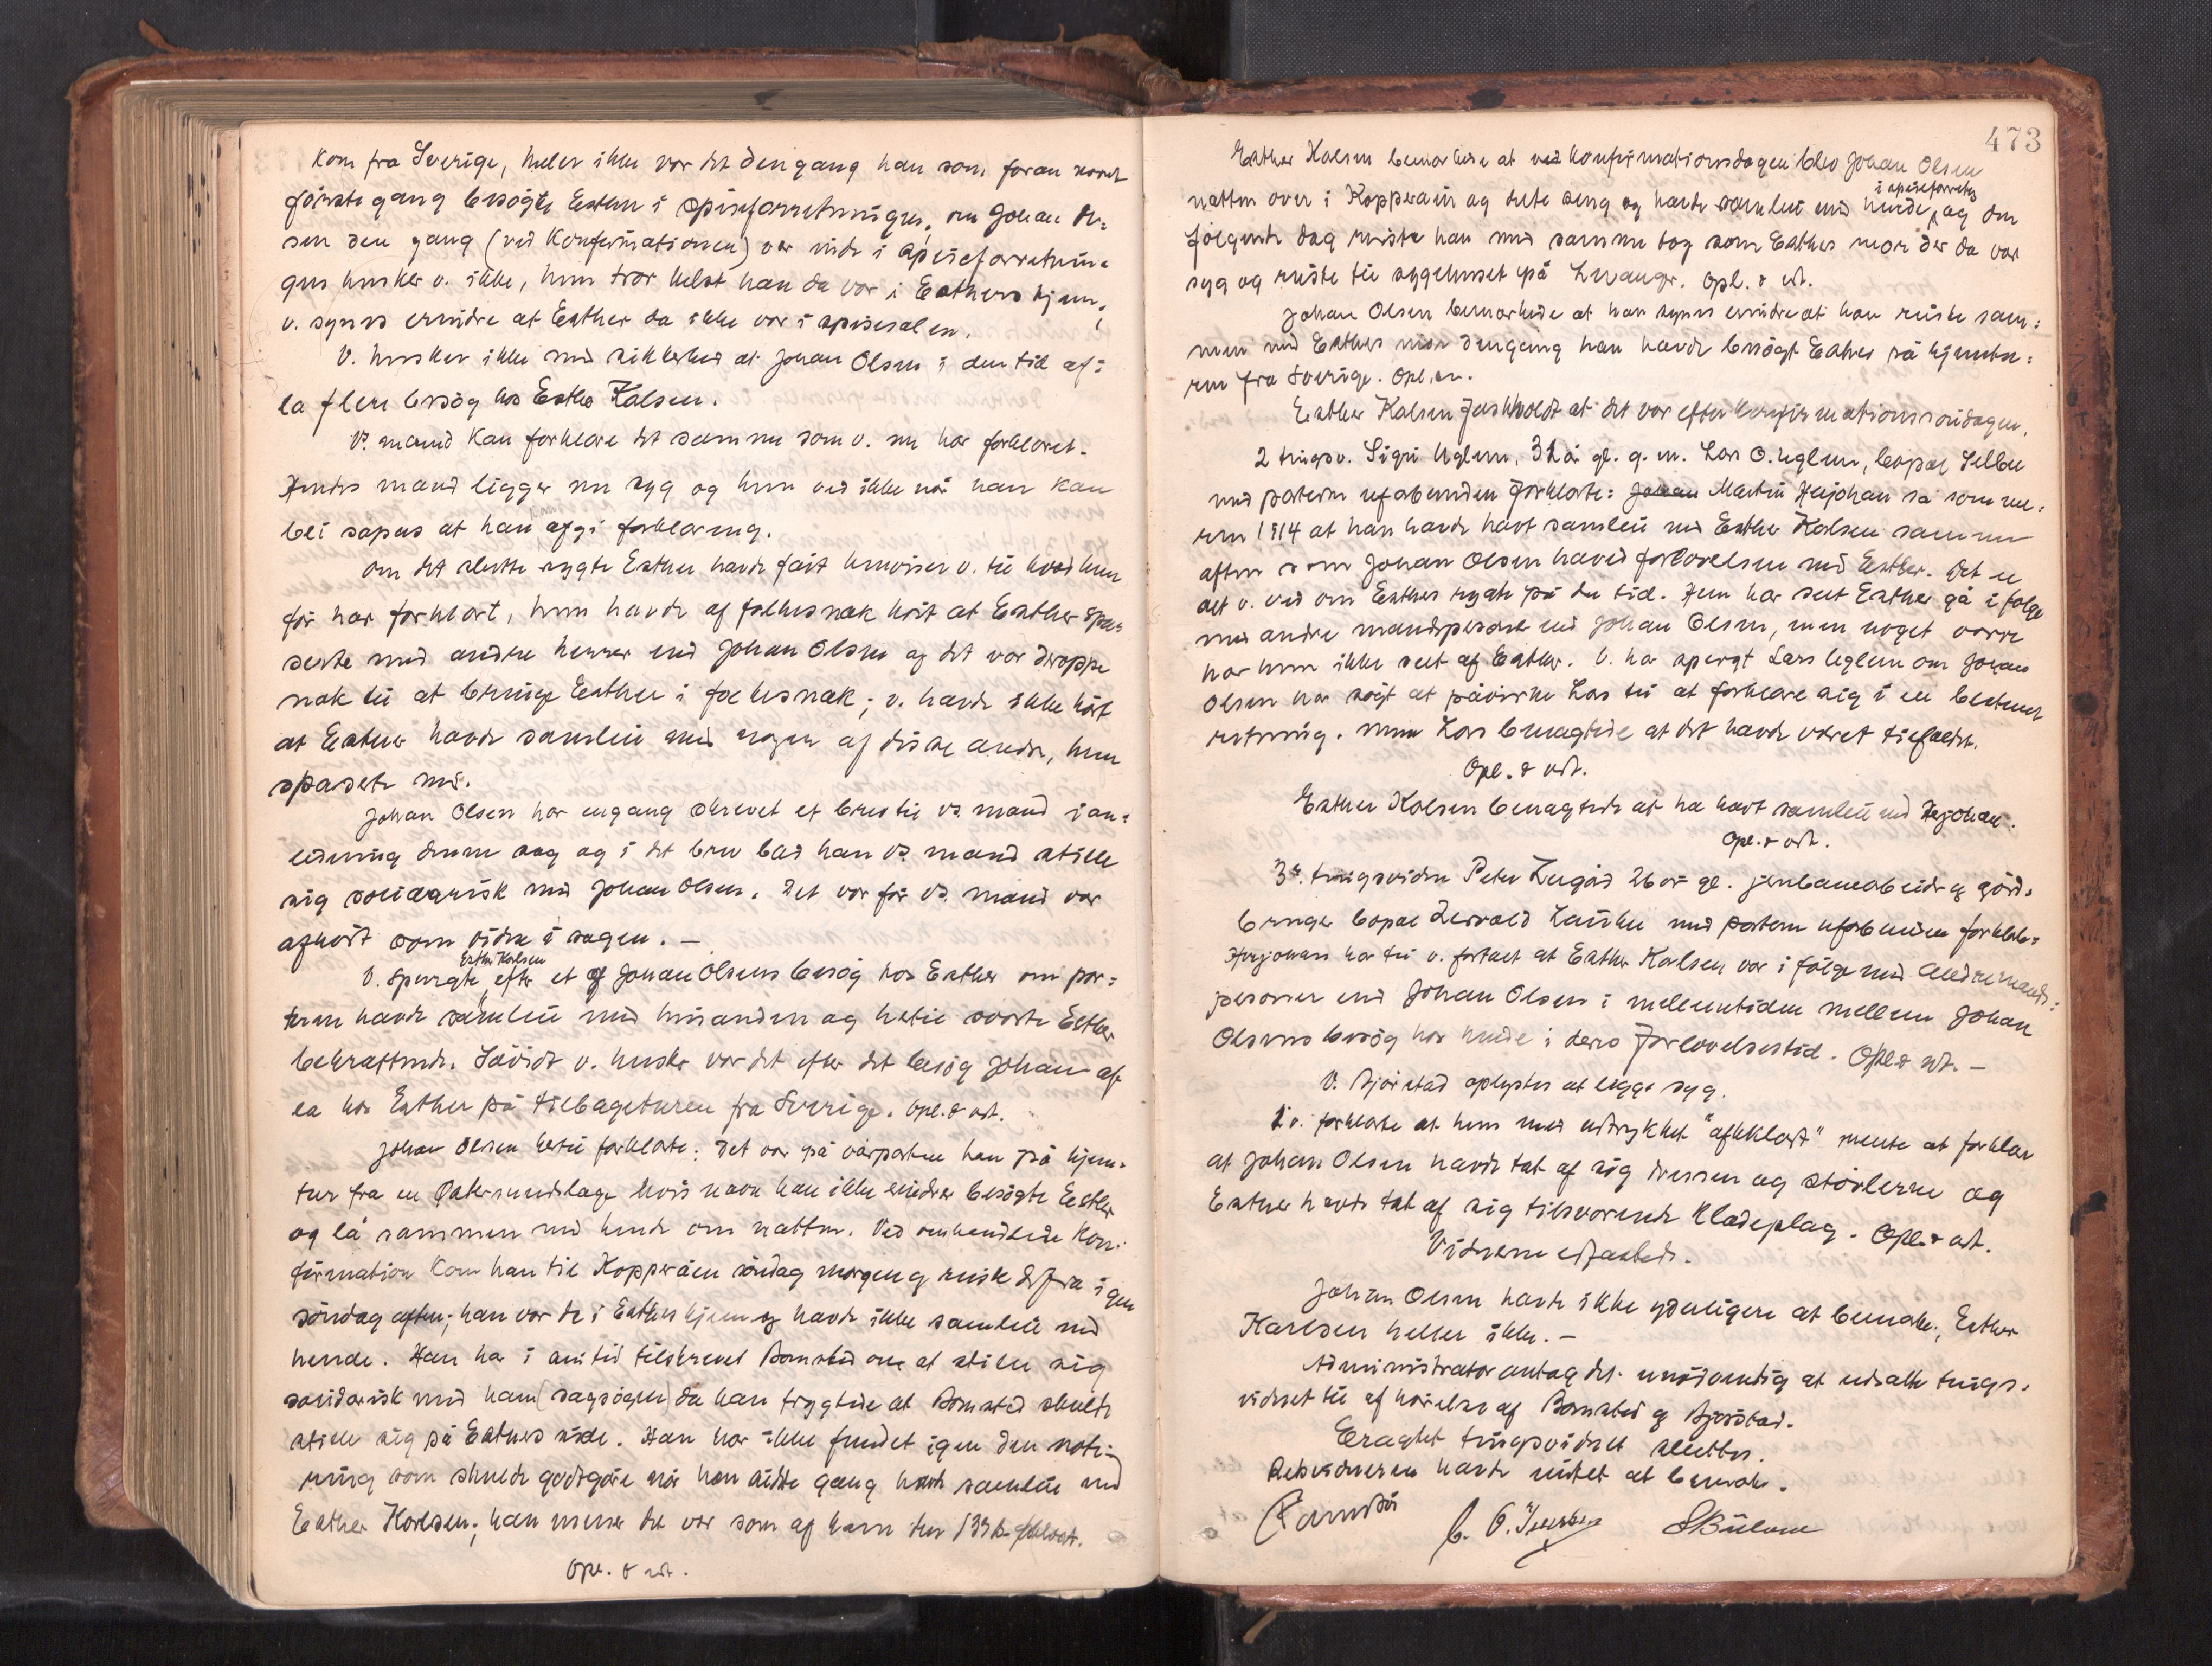 kom fra Sverige, heller ikke var det dengang han som foran nævnt
første gang besøgte Esther i spiseforretningen, om Johan Ol=
sen den gang (ved Konfirmationen) var inde i spiseforretnin=
gen husker v. ikke, hun tror helst han da var i Esthers hjem,
v. synes erindre at Esther da ikke var i spisesalen.
V. husker ikke med sikkerhed at Johan Olsen i den tid af=
la flere besøg hos Esther Karlsen.
Vs. mand kan forklare det samme som v. nu har forklaret.
Hendes mand ligger nu syg og hun ved ikke når han kan
bli såpas at han kan afgi forklaring.
Om det slette rygte Esther havde fåt henviser v. til hvad hun
før har forklart, hun havde af folkesnak hørt at Esther spa=
serte med andre herrer end Johan Olsen og det var deroppe
nok til at bringe Esther i folkesnak; v. havde ikke hørt
at Esther havde samleie med nogen af disse andre, hun
spaserte med.
Johan Olsen har engang skrevet et brev til vs. mand i an=
ledning denne sag og i det brev bad han vs. mand stille
sig solidarisk med Johan Olsen. Det var før vs. mand var
afhørt som vidne i sagen. —
Esther Karlsen
V. spurgte efter et af Johan Olsens besøg hos Esther om par=
terne havde samleie med hinanden og hertil svarte Esther
bekræftende. Såvidt v. husker var det efter det besøg Johan af=
la hos Esther på tilbageturen fra Sverige. Opl. & vdt.
Johan Olsen hertil forklarte: Det var på vårparten han på hjem=
tur fra en Østersundslage hvis navn han ikke erindrer besøgte Esther
og lå sammen med hende om natten. Ved omhandlede Kon=
firmation kom han til Kopperåen søndag morgen og reiste derfra igen
søndag aften; han var da i Esthers hjem og havde ikke samleie med
hende. Han har i sin tid tilskrevet Bomsted om at stille sig
solidarisk med ham (sagsøgeren) da han frygtede at Bomsted skulde
stille sig på Esthers side. Han har ikke fundet igen den note=
ring som skulde godtgøre når han sidste gang havde samleie med
Esther Karlsen; han mener det var som af ham den 13de forklart.
Opl. & vdt.
473
Esther Karlsen bemærkede at ved konfirmationsdagen blev Johan Olsen
i spiseforretn.
natten over i Kopperåen og delte seng og havde samleie med hende, og den
følgende dag reiste han med samme tog som Esthers mor der da var
syg og reiste til sygehuset på Levanger. Opl. & vdt.
Johan Olsen bemærkede at han synes erindre at han reiste sam=
men med Esthers mor dengang han havde besøgt Esther på hjemtu=
ren fra Sverige. Opl. &.
Esther Karlsen fastholdt at det var efter konfirmationssøndagen.
2 tingsv. Sigri Uglem, 31 år gl. g. m. Lars O. Uglem, bopæl Selbu
med parterne ubeslægtet forklarte: Johan Martin Herjohan sa sommer=
en 1914 at han havde havt samleie med Esther Karlsen samme
aften som Johan Olsen hævede forlovelsen med Esther. Det er
alt v. ved om Esthers rygte på den tid. Hun har seet Esther gå i følge
med andre mandspersoner end Johan Olsen, men noget værre
har hun ikke seet af Esther. V. har spurgt Lars Uglem om Johan
Olsen har søgt at påvirke Lars til at forklare sig i en bestemt
retning. men Lars benegtede at det havde været tilfældet.
Opl. & vdt.
Esther Karlsen benegtede at ha havt samleie med Herjohan.
Opl. & vdt.
3die tingsvidne Peter 26 år gl. jernbanearbeider og gård=
bruger bopæl med parterne forklarte:
Herjohan har til v. fortalt at Esther Karlsen var i følge med andre mands=
personer end Johan Olsen i mellemtiden mellem Johan
Olsens besøg hos hende i deres forlovelsestid. Opl. & vdt. —
V. Bjørstad oplystes at ligge syg.
1 v. forklarte at hun med udtrykket "afklædt" mente at forklare
at Johan Olsen havde tat af sig dressen og støvlerne og
Esther havde tat af sig tilsvarende klædeplag. Opl. & vdt.
Vidnerne edfæstedes.
Johan Olsen havde ikke yderligere at bemærke, Esther
Karlsen heller ikke. —
Administrator antog det unødvendig at udsætte tings=
vidnet til afhørelse af Bomsted og Bjørstad.
Eragtet tingsvidnet sluttes.
Retsvidnerne havde intet at bemærke.